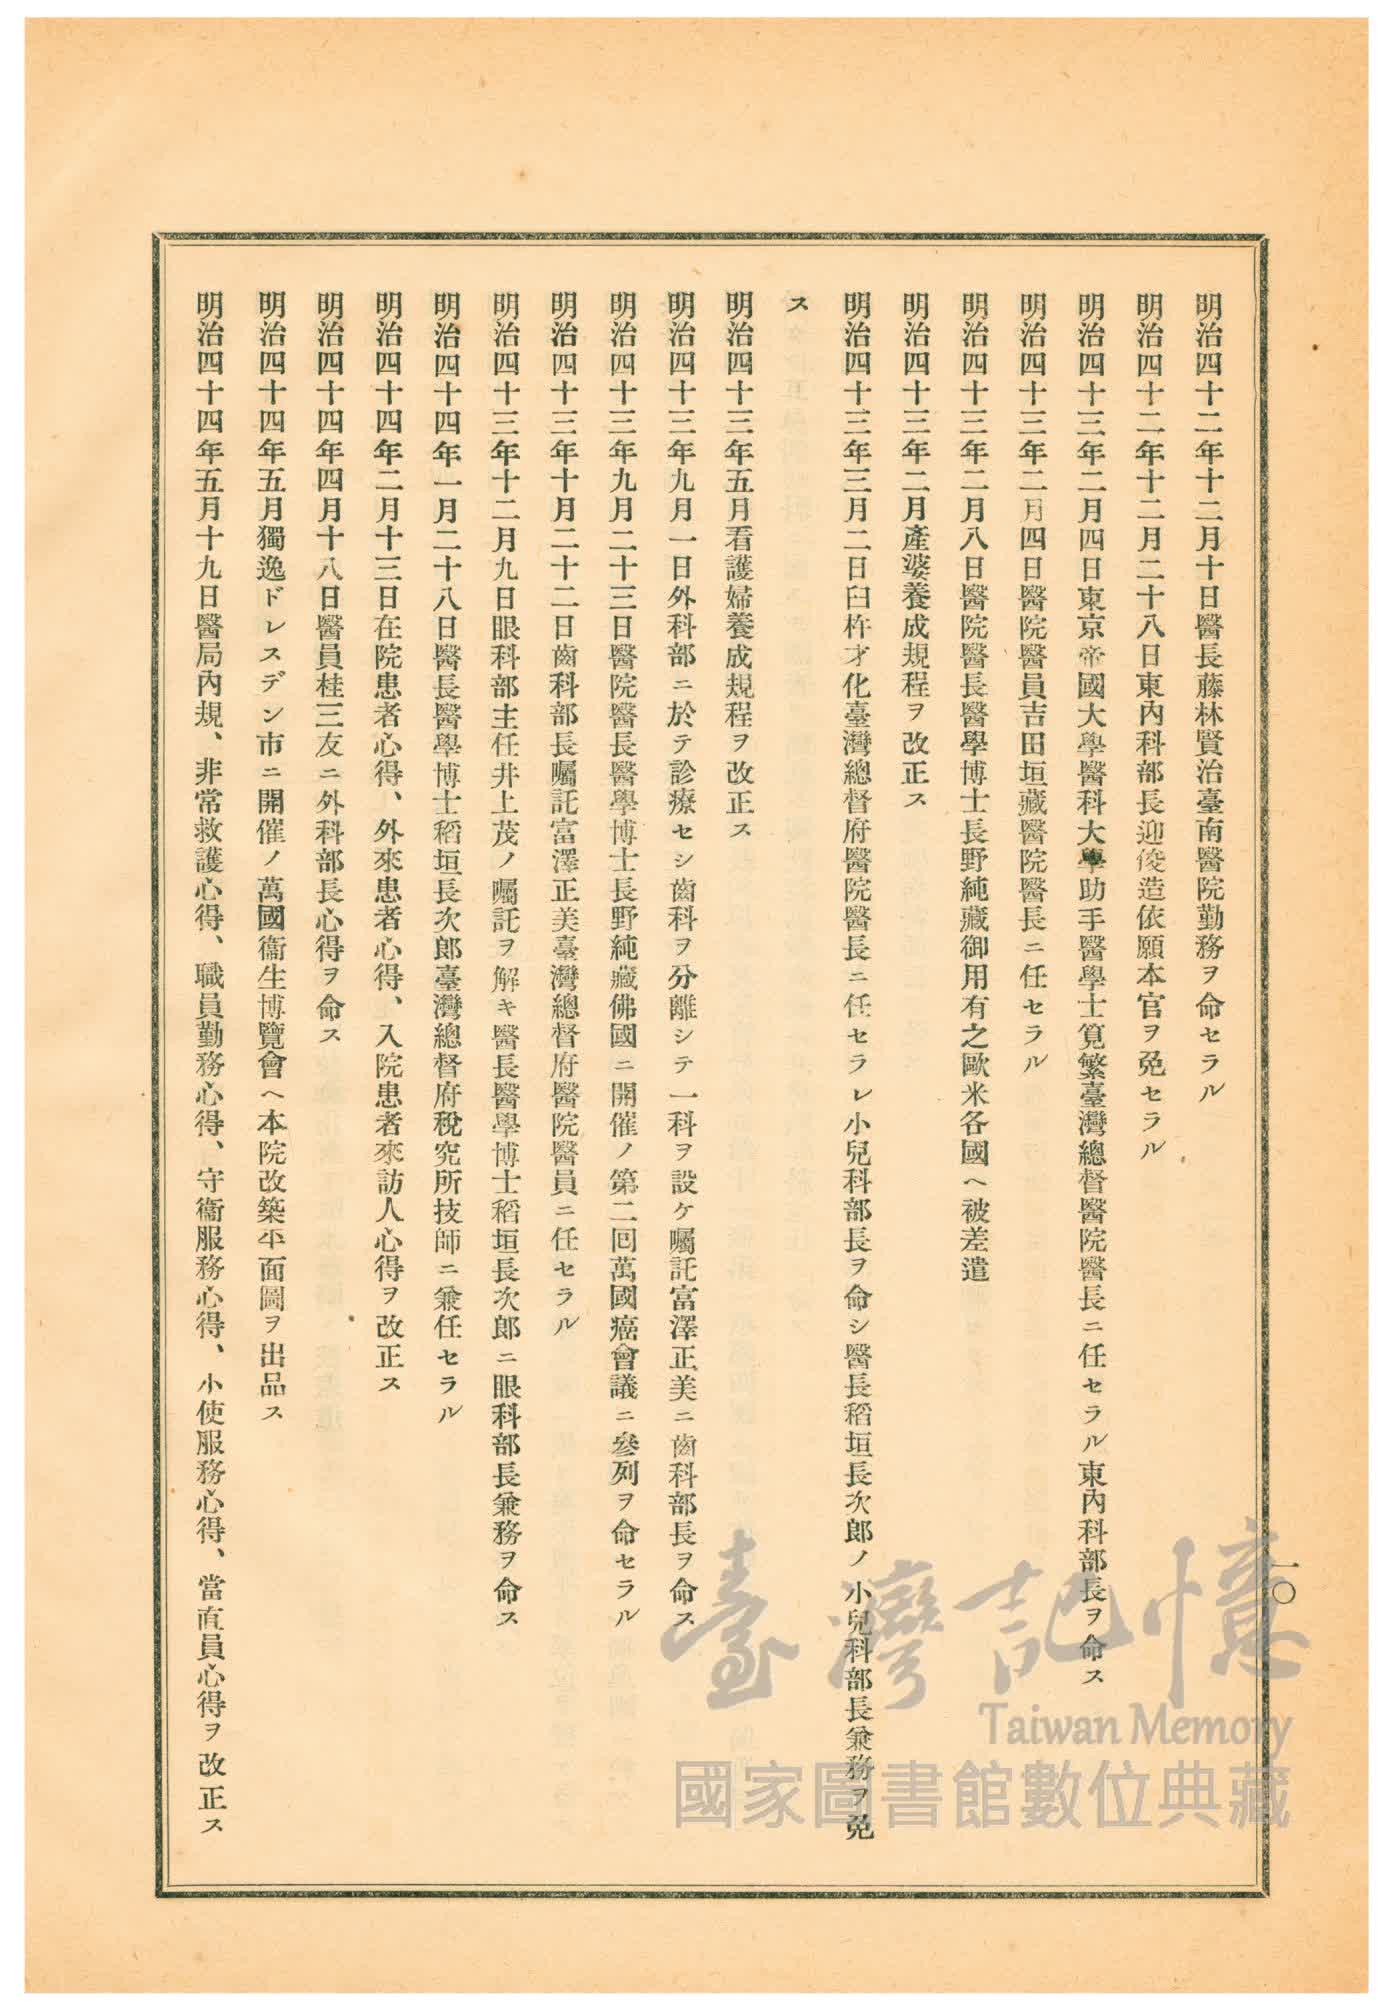 明治四十二年十二月十日醫長藤林賢治臺南醫院勤務ヲ命セラル
明治四十二年十二月二十八日東內科部長迎俊造依願本官ヲ免セラル
明治四十三年二月四日東京帝國大學醫科大學助手醫學士筧繁臺灣總督醫院醫長ニ任セラル東內科部長ヲ命ス
明治四十三年二月四日醫院醫員吉田垣藏醫院醫長ニ任セラル
明治四十三年二月八日醫院醫長醫學博士長野純藏御用有之歐米各國ヘ被差遣
明治四十三年二月產婆養成規程ヲ改正ス
明治四十三年三月二日臼杵才化臺灣總督府醫院醫長ニ任セラレ小兒科部長ヲ命シ醫長稻垣長次郎ノ小兒科部長兼務ヲ免
ス
明治四十三年五月看護婦養成規程ヲ改正ス
明治四十三年九月一日外科部ニ於テ診療セシ齒科ヲ分離シテ一科ヲ設ケ囑託富澤正美ニ齒科部長ヲ命ス
明治四十三年九月二十三日醫院醫長醫學博士長野純藏佛國ニ開催ノ第二回萬國癌會議ニ參列ヲ命セラル
明治四十三年十月二十二日齒科部長囑託富澤正美臺灣總督府醫院醫員ニ任セラル
明治四十三年十二月九日眼科部主任井上茂ノ囑託ヲ解キ醫長醫學博士稻垣長次郎ニ眼科部長兼務ヲ命ス
明治四十四年一月二十八日醫長醫學博士稻垣長次郎臺灣總督府稅究所技師ニ兼任セラル
明治四十四年二月十三日在院患者心得、外來患者心得、入院患者來訪人心得ヲ改正ス
明治四十四年四月十八日醫員桂三友ニ外科部長心得ヲ命ス
明治四十四年五月獨逸ドレスデン市ニ開催ノ萬國衞生博覽會ヘ本院改築平面圖ヲ出品ス
明治四十四年五月十九日醫局內規、非常救護心得、職員勤務心得、守衞服務心得、小使服務心得、當直員心得ヲ改正ス
一〇
臺灣記憶
Taiwan Memory
國家圖書館數位典藏